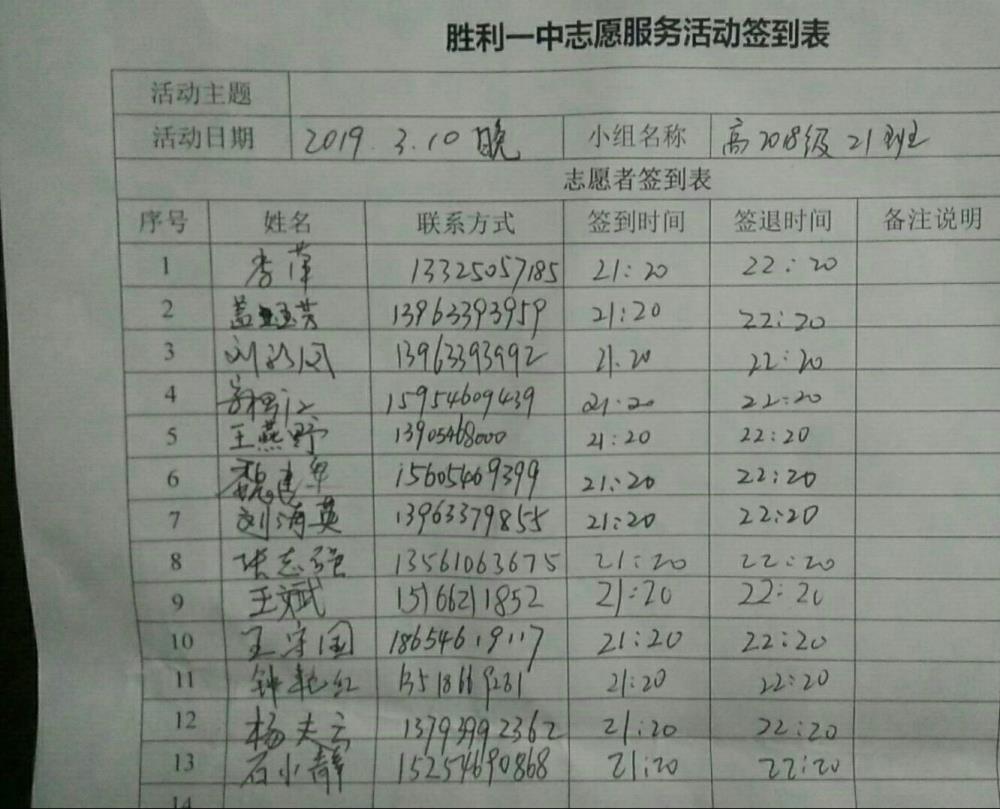 胜利一中志愿服务活动签到表
活动主题
活动日期 2019.3.10 晚 小组名称 高2018级21班
志愿者签到表
序号 姓名 联系方式 签到时间 签退时间 备注说明
1 李萍 13325057185 21:20 22:20
2 盖 芳 13963393959 21:20 22:20
3 刘 凤 13963393992 21:20 22:20
4 15954609439 21:20 22:20
5 王燕野 13905468000 21:20 22:20
6 魏建军 15605469399 21:20 22:20
7 刘海英 13963379855 21:20 22:20
8 张志强 13561063675 21:20 22:20
9 王斌 15166211852 21:20 22:20
10 王守国 18654619117 21:20 22:20
11 钟艳红 21:20 22:20
12 杨夫云 13793992362 21:20 22:20
13 石小静 15254690868 21:20 22:20
14